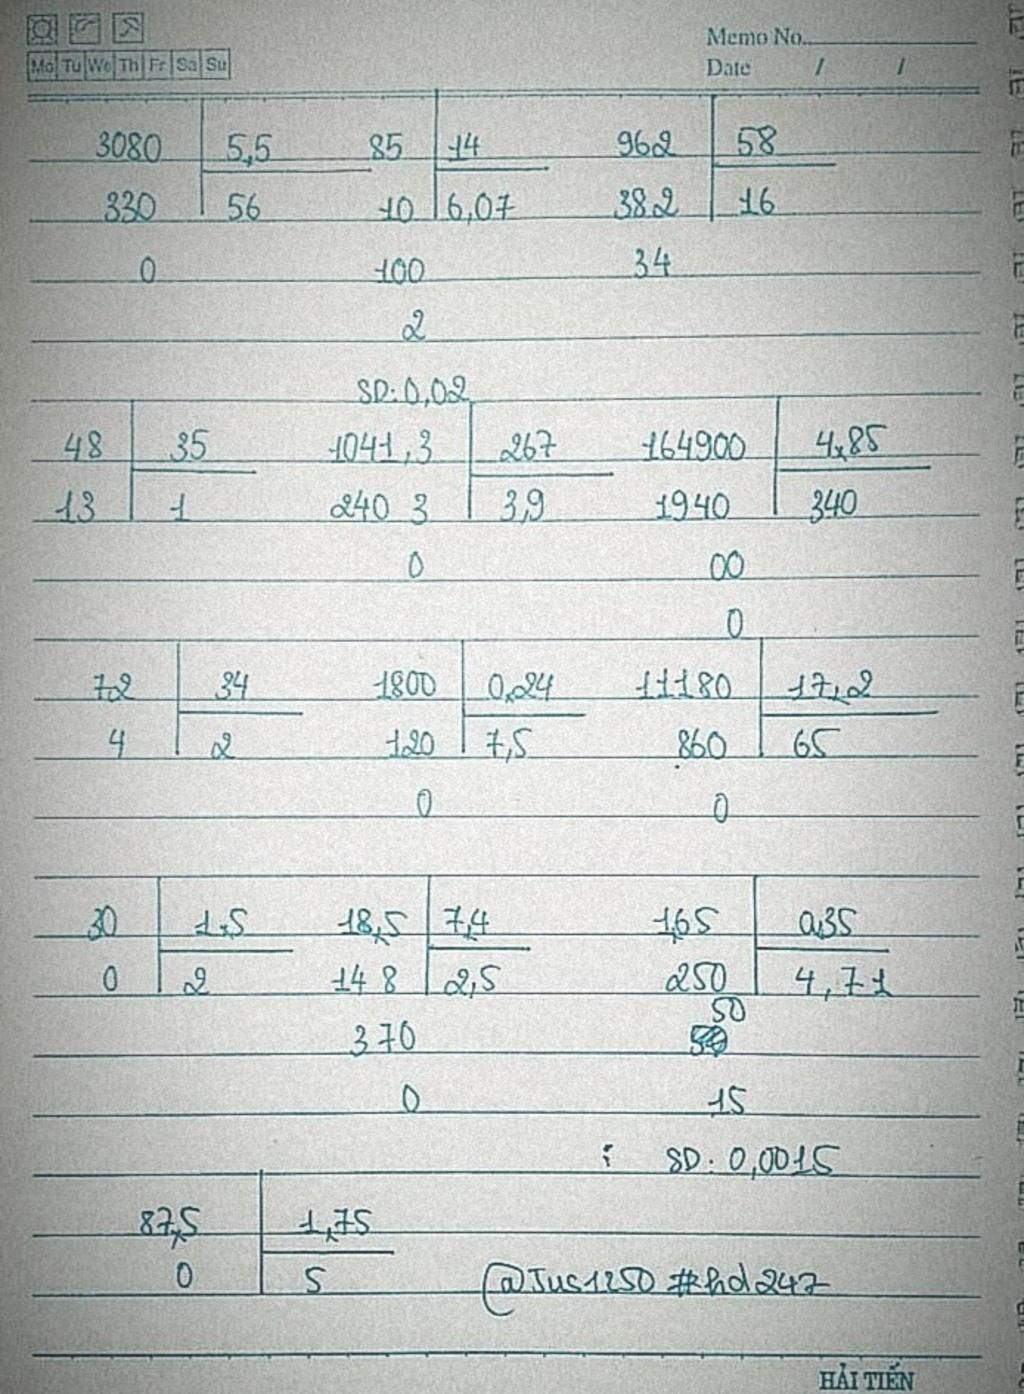 Memo No.
Mo Tu We Th Fr Sa Su
Date / /
3080 5,5 85 14 962 58
330 56 10 6,07 382 16
0 100 34
2
SD: 0,02
48 35 1041,3 267 164900 4,85
13 1 240 3 3,9 1940 340
0 00
0
72 34 1800 0,24 11180 17,2
4 2 120 7,5 860 65
0 0
30 1,5 18,5 7,4 1,65 0,35
0 2 14 8 2,5 250 4,71
50
370
0 15
SD: 0,0015
87,5 1,75
0 5 @Jus1250 #hd247
HẢI TIẾN